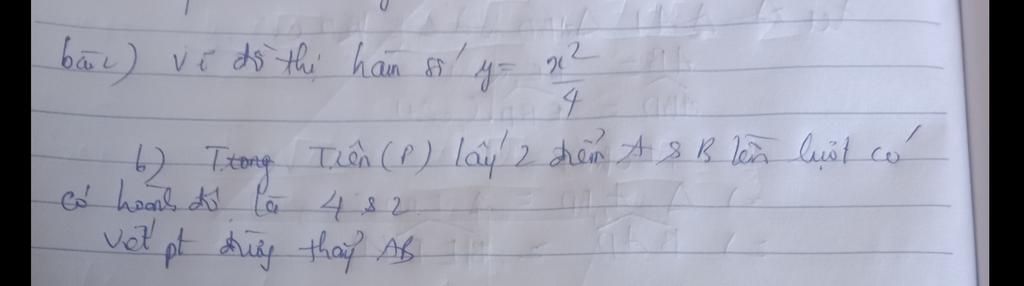 bài 2) Vẽ đồ thị hàm số y = x²/4
b) Trong Trên (P) lấy 2 điểm A & B lần lượt có
có hoành độ là 4 & 2
Viết pt đường thẳng AB